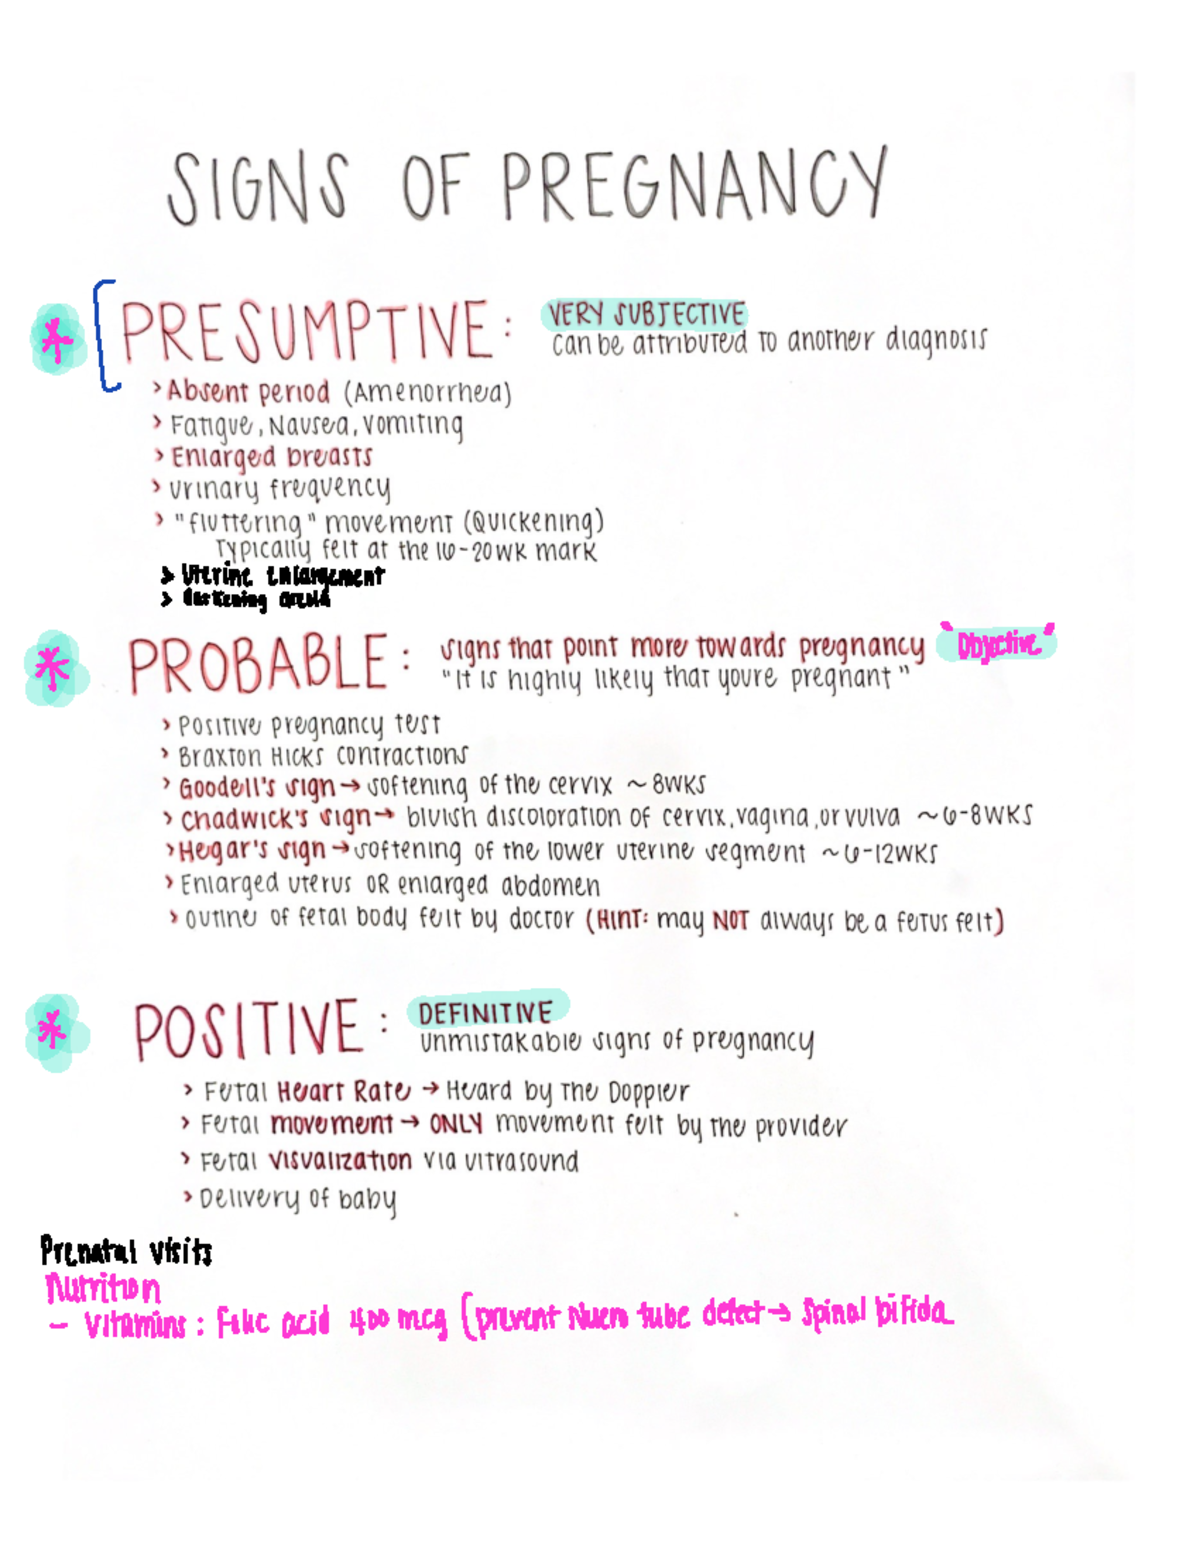 SIGNS OF PREGNANCY
PRESUMPTIVE: VERY SUBJECTIVE
can be attributed to another diagnosis
> Absent period (Amenorrhea)
> Fatigue, Nausea, Vomiting
> Enlarged breasts
> urinary frequency
> "fluttering" movement (Quickening)
Typically felt at the 16-20WK mark
> Uterine Enlargement
> darkening
PROBABLE: signs that point more towards pregnancy "Objective"
"It is highly likely that youre pregnant"
> Positive pregnancy test
> Braxton Hicks contractions
> Goodell's sign → softening of the cervix ~8WKS
> Chadwick's sign → bluish discoloration of cervix, vagina, or vulva ~6-8WKS
> Hegar's sign → softening of the lower uterine segment ~6-12WKS
> Enlarged uterus OR enlarged abdomen
> outline of fetal body felt by doctor (HINT: may NOT always be a fetus felt)
POSITIVE: DEFINITIVE
unmistakable signs of pregnancy
> Fetal Heart Rate → Heard by The Doppler
> Fetal movement → ONLY movement felt by the provider
> Fetal visualization via ultrasound
> Delivery of baby
Prenatal visits
Nutrition
- Vitamins: Folic acid 400 mcg (prevent tube defect → Spinal bifida